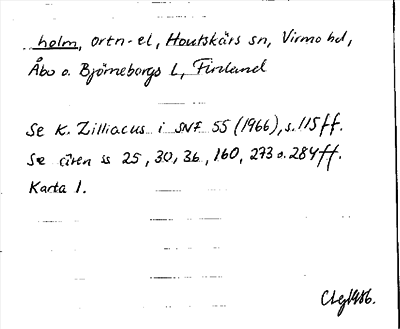 holm, ortn-el, Houtskärs sn, Virmo hd,
Åbo o. Björneborgs l, Finland
Se K. Zilliacus i SNF 55 (1966), s. 115 ff.
Se även ss 25, 30, 36, 160, 273 o. 284 ff.
Karta 1.
CLg 1986.